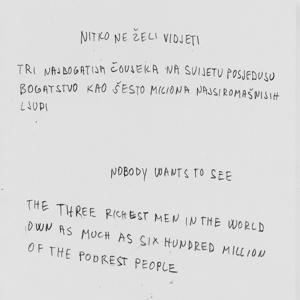 NITKO NE ŽELI VIDJETI
TRI NAJBOGATIJA ČOVJEKA NA SVIJETU POSJEDUJU
BOGATSTVO KAO ŠESTO MILIONA NAJSIROMAŠNIJIH
LJUDI
NOBODY WANTS TO SEE
THE THREE RICHEST MEN IN THE WORLD
OWN AS MUCH AS SIX HUNDRED MILLION
OF THE POOREST PEOPLE